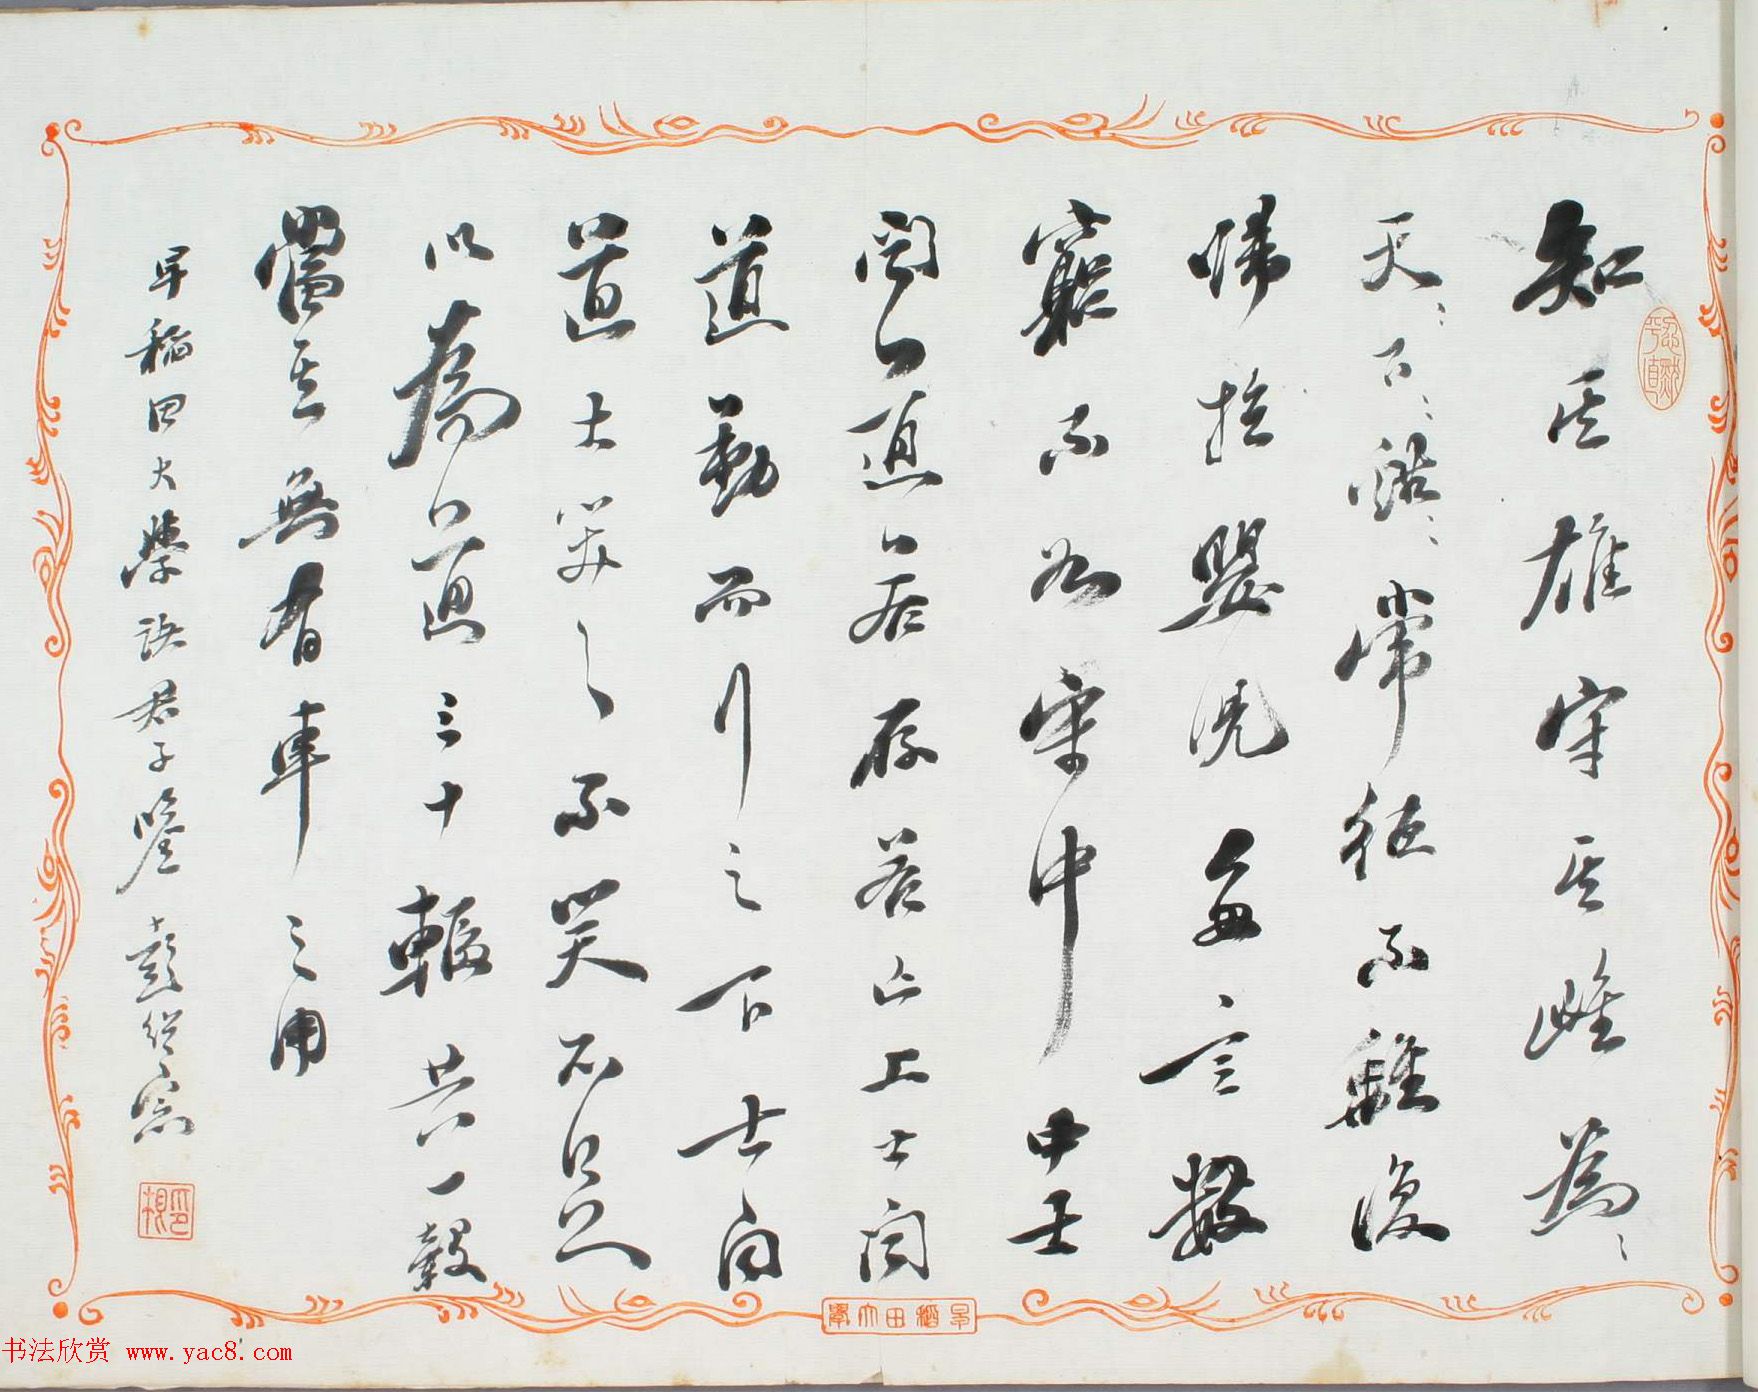 知其雄守其雌為〻
天〻下〻谿〻常德不離復
歸於嬰兒多言數
窮不如守中中士
聞道若存若亡上士聞
道勤而行之下士聞
道大笑之不笑不足
以為道三十輻共一轂
當其無有車之用
早稻田大學諸君子鑒 彭紹宗
早稻田大學
书法欣赏 www.yac8.com